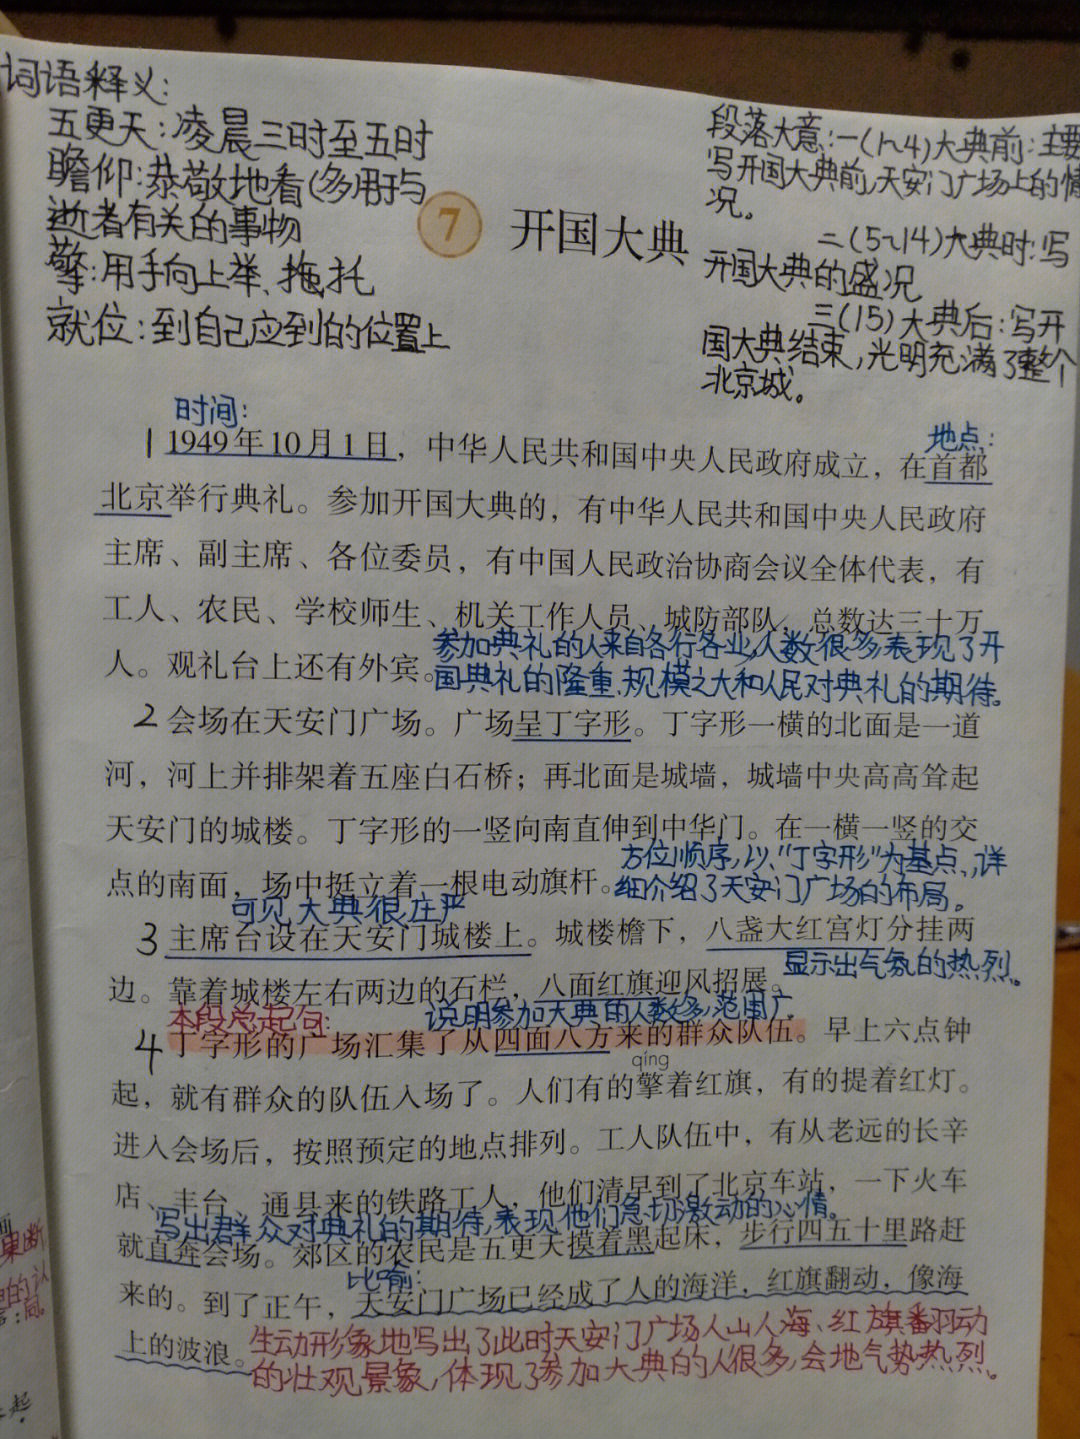 词语释义:
五更天:凌晨三时至五时
瞻仰:恭敬地看(多用于与
逝者有关的事物
擎:用手向上举、拖托
就位:到自己应到的位置上
段落大意:一(1~4)大典前:主要
写开国大典前,天安门广场上的情
况。
二(5~14)大典时:写
开国大典的盛况
三(15)大典后:写开
国大典结束,光明充满了整个
北京城。
7 开国大典
时间:
地点:
1 1949年10月1日，中华人民共和国中央人民政府成立，在首都
北京举行典礼。参加开国大典的，有中华人民共和国中央人民政府
主席、副主席、各位委员，有中国人民政治协商会议全体代表，有
工人、农民、学校师生、机关工作人员、城防部队，总数达三十万
人。观礼台上还有外宾。
参加典礼的人来自各行各业,人数很多,表现了开
国典礼的隆重、规模之大和人民对典礼的期待。
2 会场在天安门广场。广场呈丁字形。丁字形一横的北面是一道
河，河上并排架着五座白石桥；再北面是城墙，城墙中央高高耸起
天安门的城楼。丁字形的一竖向南直伸到中华门。在一横一竖的交
点的南面，场中挺立着一根电动旗杆。
方位顺序,以“丁字形”为基点,详
细介绍了天安门广场的布局。
可见大典很庄严
3 主席台设在天安门城楼上。城楼檐下，八盏大红宫灯分挂两
边。靠着城楼左右两边的石栏，八面红旗迎风招展。
显示出气氛的热烈。
本段总起句:
说明参加大典的人数多,范围广。
4 丁字形的广场汇集了从四面八方来的群众队伍。早上六点钟
qíng
起，就有群众的队伍入场了。人们有的擎着红旗，有的提着红灯。
进入会场后，按照预定的地点排列。工人队伍中，有从老远的长辛
店、丰台、通县来的铁路工人，他们清早到了北京车站，一下火车
写出群众对典礼的期待,表现他们急切激动的心情。
就直奔会场。郊区的农民是五更天摸着黑起床，步行四五十里路赶
比喻:
来的。到了正午，天安门广场已经成了人的海洋，红旗翻动，像海
上的波浪。
生动形象地写出了此时天安门广场人山人海、红旗翻动
的壮观景象,体现了参加大典的人很多,会地气势热烈。
果断
的认
同。
起